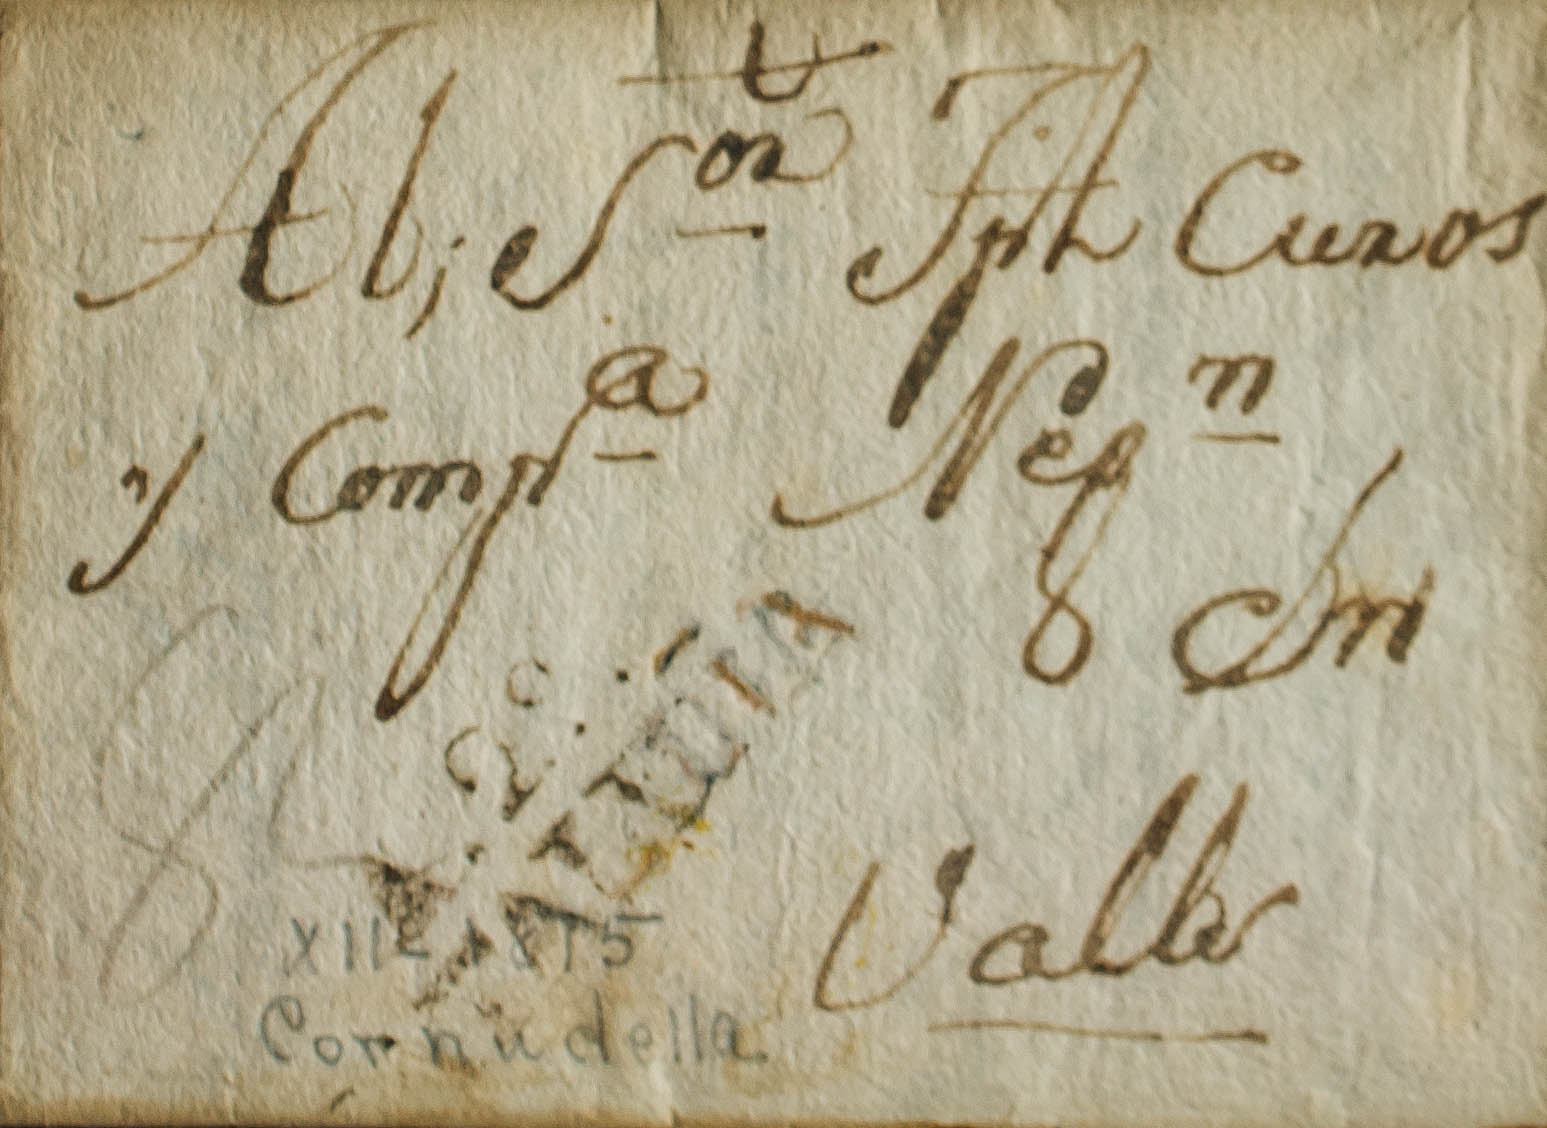 t
Al; Sor Jph Curos
y Compa Negn
Valls
XII-1815
Cornudella